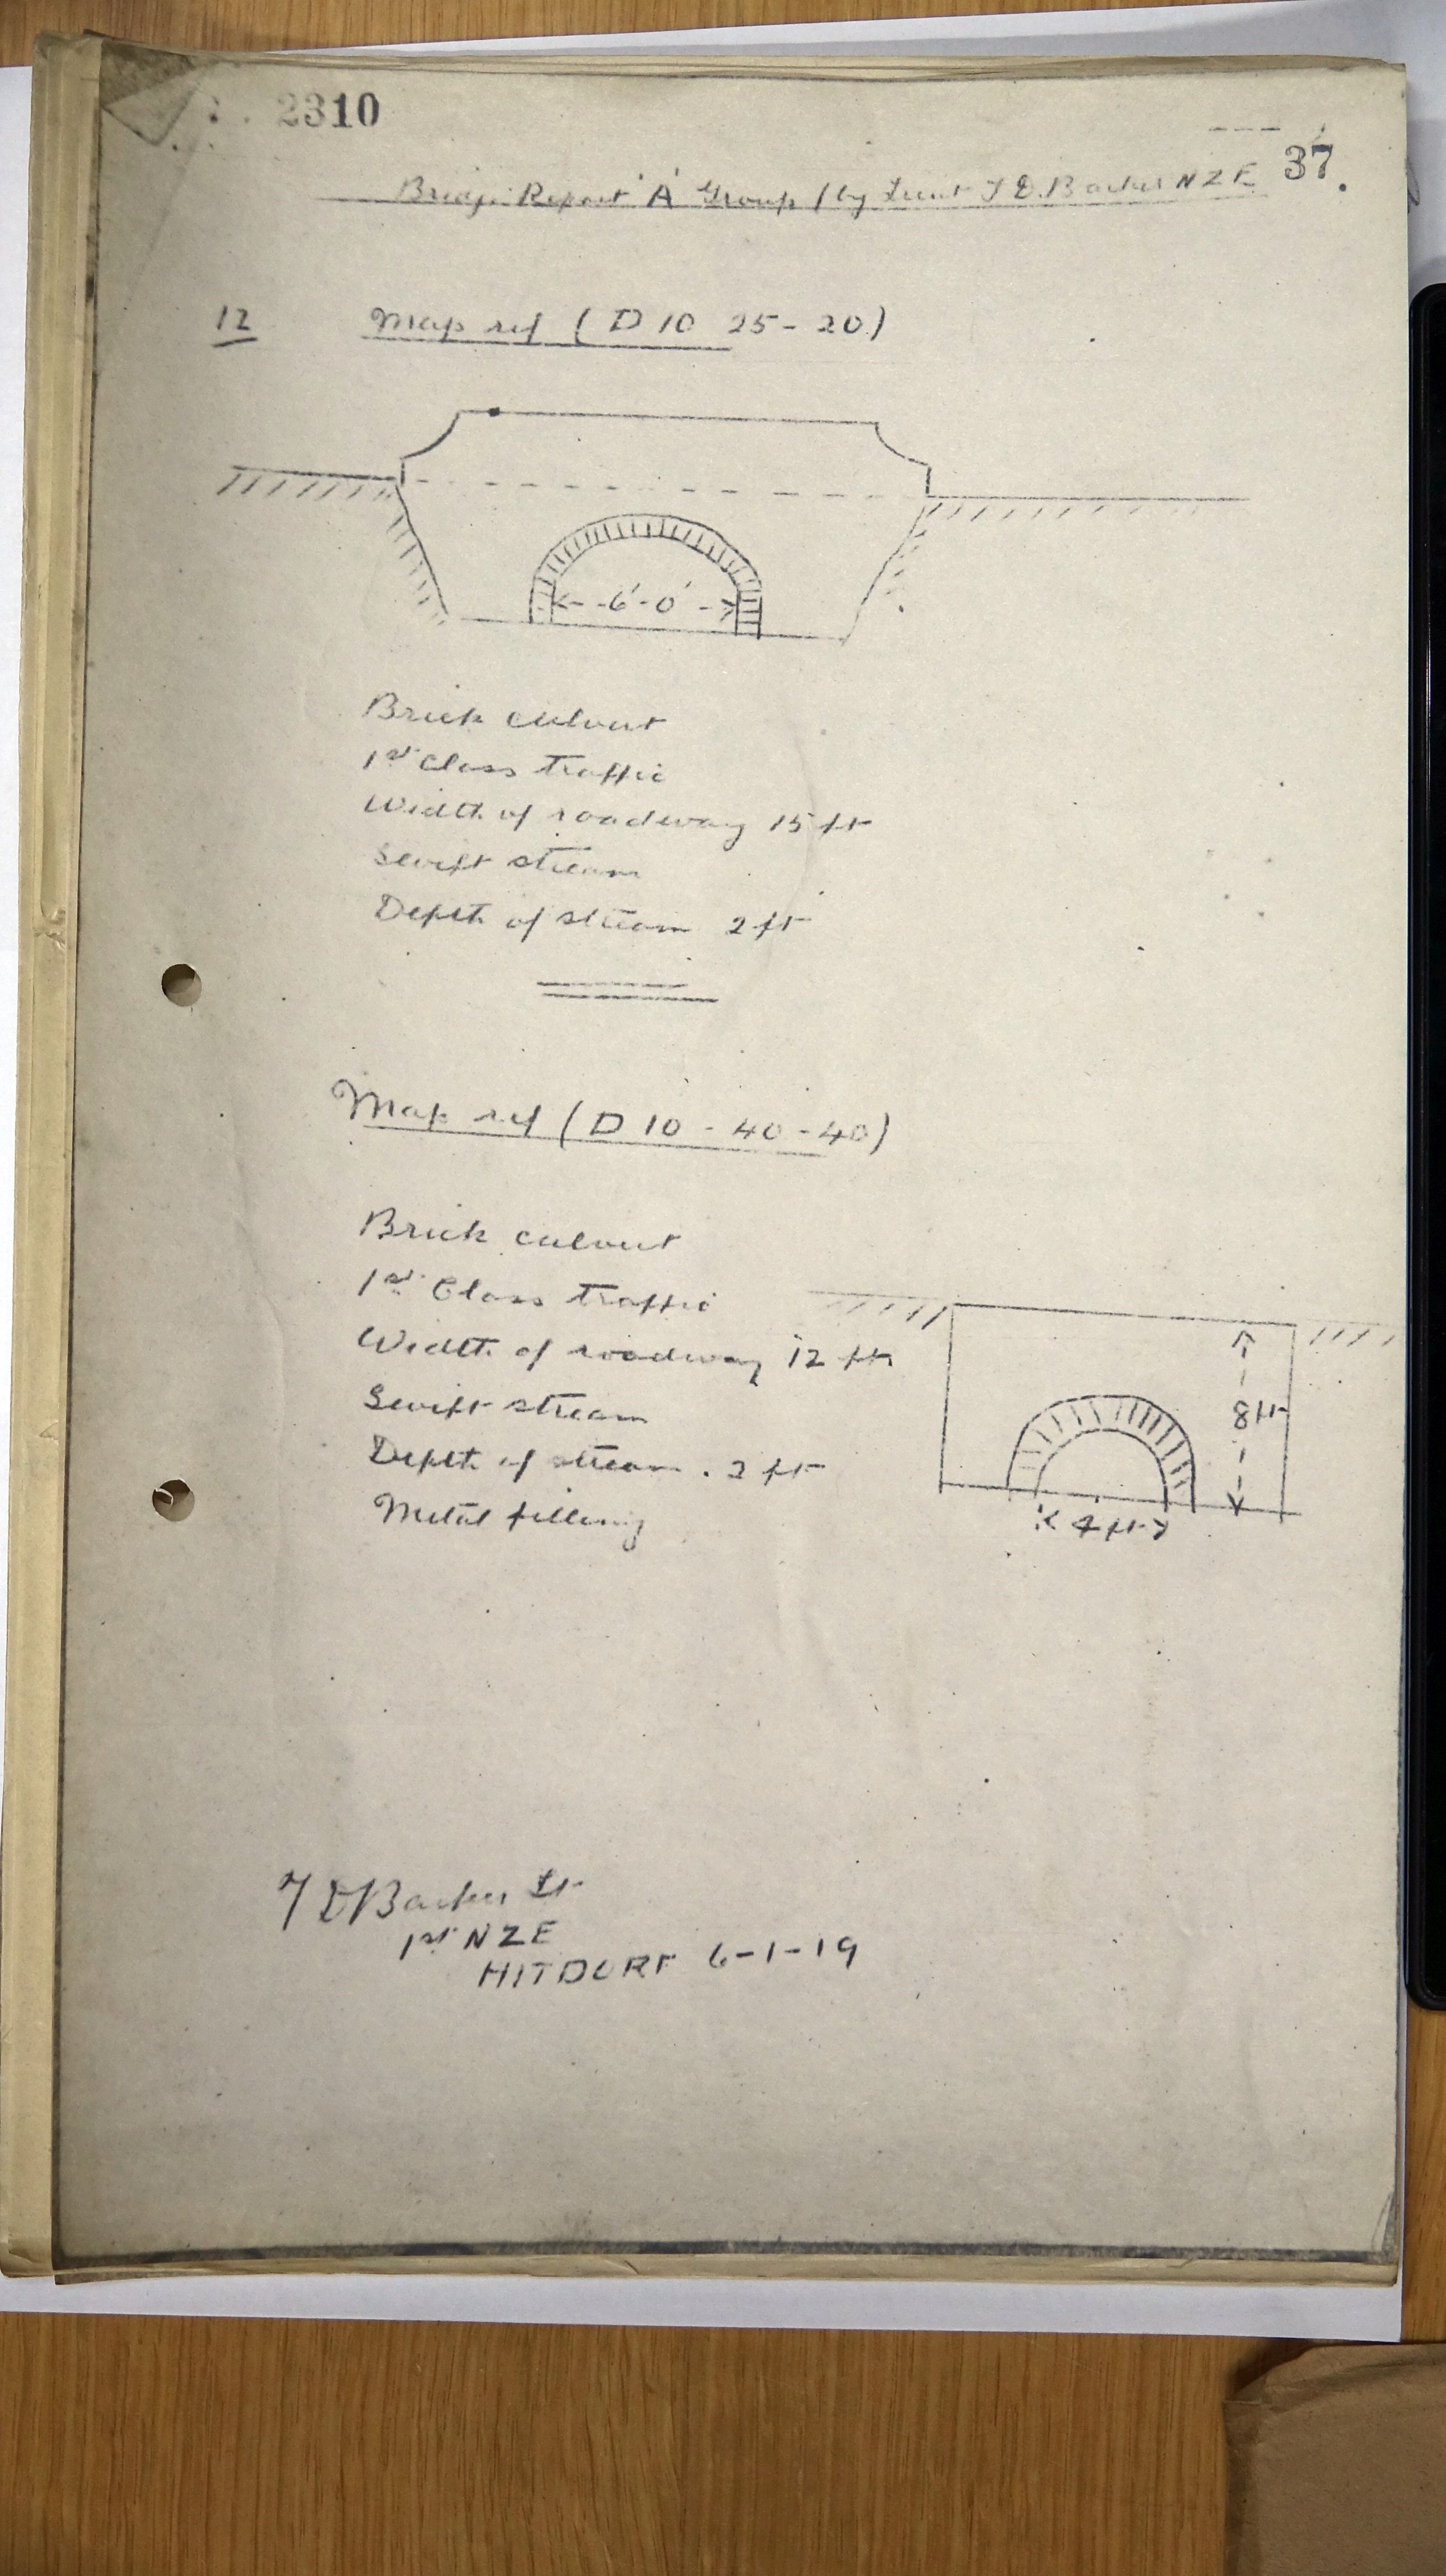 2310
37.
Bridge Report 'A' Group / by Lieut T D. Barker NZE
12 Map ref ( D 10 25 - 20 )
6'-0"
Brick culvert
1st Class traffic
Width of roadway 15 ft
Swift stream
Depth of stream 2 ft
Map ref ( D 10 - 40 - 40 )
Brick culvert
1st Class traffic
Width of roadway 12 ft
Swift stream
Depth of stream . 2 ft
Metal filling
8 ft
4 ft
Barker Lt
1st NZE
HITDORF 6-1-19